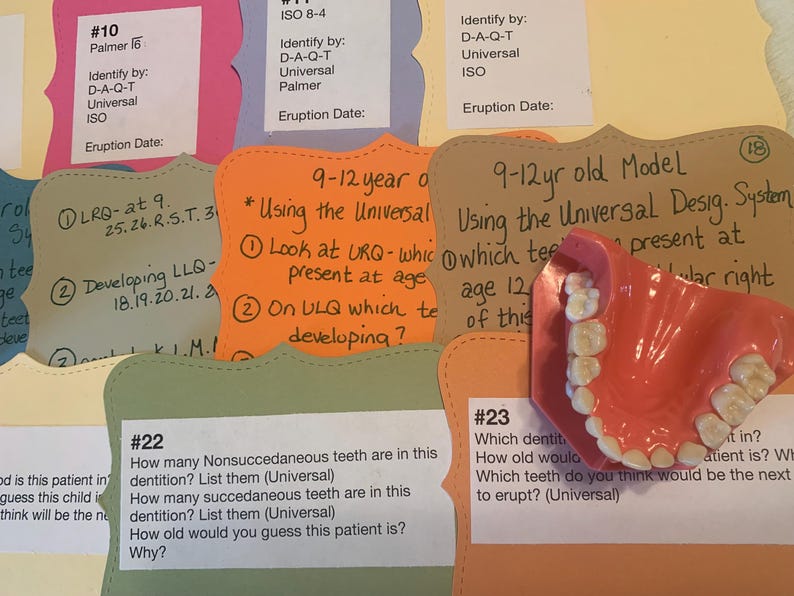 #10
Palmer 6
Identify by:
D-A-Q-T
Universal
ISO
Eruption Date:
ISO 8-4
Identify by:
D-A-Q-T
Universal
Palmer
Eruption Date:
Identify by:
D-A-Q-T
Universal
ISO
Eruption Date:
① LRQ- at 9.
25.26.R.S.T.3
② Developing LLQ-
18.19.20.21.2
9-12 year o
* Using the Universal
① Look at URQ- whic
present at age
② On ULQ which te
developing?
⑱
9-12yr old Model
Using the Universal Desig. System
① which tee present at
age 12 ular right
of this
#22
How many Nonsuccedaneous teeth are in this
dentition? List them (Universal)
How many succedaneous teeth are in this
dentition? List them (Universal)
How old would you guess this patient is?
Why?
#23
Which dentit t in?
How old would atient is? Wh
Which teeth do you think would be the next
to erupt? (Universal)
od is this patient in?
guess this child i
think will be the ne